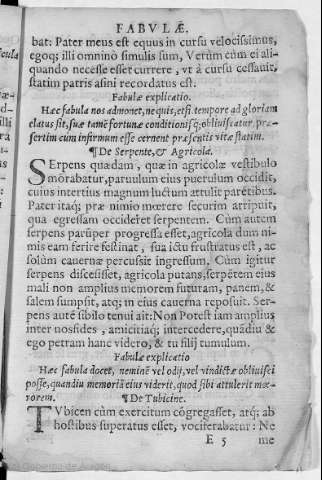 FABVLÆ.
bat: Pater meus est equus in cursu velocissimus,
egoq; illi omninò simulis sum, Verùm cùm ei ali-
quando necesse esset currere, vt à cursu cessauit,
statim patris asini recordatus est.
Fabulæ explicatio.
Hæc fabula nos admonet, ne quis, etsi tempore ad gloriam
elatus sit, suæ tamẽ fortunæ conditionisq; obliuiscatur præ-
sertim cum infirmum esse cernent præsentis vitæ statim.
¶ De Serpente, & Agricola.
Serpens quædam, quæ in agricolæ vestibulo
morabatur, paruulum eius puerulum occidit,
cuius intertius magnum luctum attulit parẽtibus.
Pater itaq; præ nimio mœrere securim arripuit,
qua egressam occideret serpentem. Cùm autem
serpens parũper progressa esset, agricola dum ni-
mis eam ferire festinat, sua ictu frustratus est, ac
solùm cauernæ percussit ingressum. Cùm igitur
serpens discessisset, agricola putans, serpẽtem eius
mali non amplius memorem futuram, panem, &
salem sumpsit, atq; in eius cauerna reposuit. Ser-
pens autẽ sibilo tenui ait: Non Potest iam amplius
inter nos fides, amicitiaq; intercedere, quãdiu &
ego petram hanc videro, & tu filij tumulum.
Fabulæ explicatio
Hæc fabula docet, neminẽ vel odij, vel vindictæ obliuisci
posse, quandiu memoriã eius viderit, quod sibi attulerit mœ-
rorem.
¶ De Tubicine.
TVbicen cùm exercitum cõgregasset, atq; ab
hostibus superatus esset, vociferabatur: Ne
E 5
me